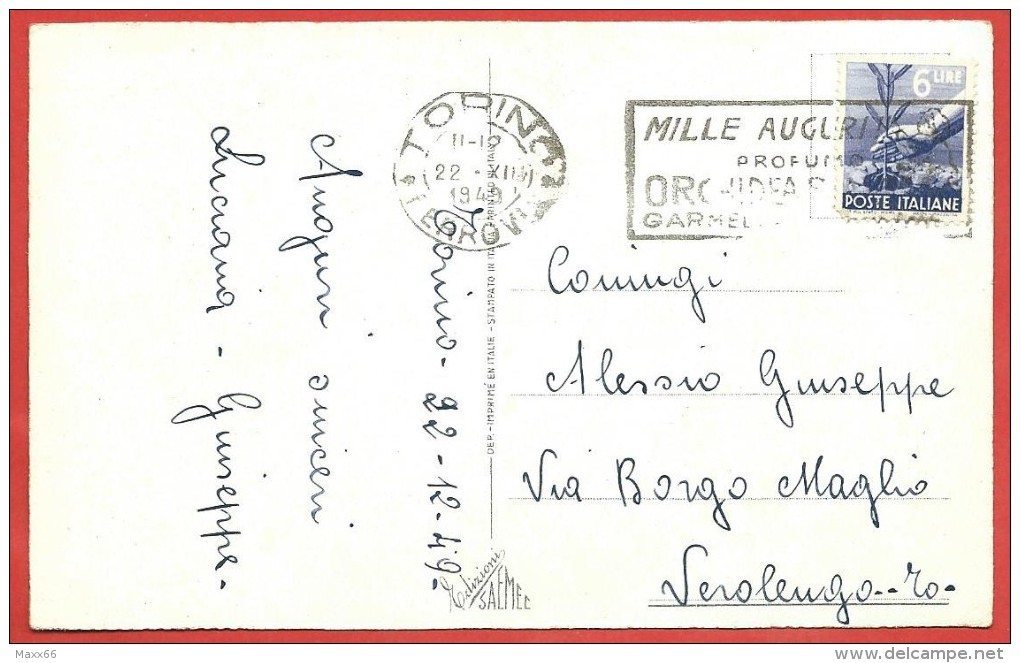 TORINO
11-12
22-XII
1949
FERROVIA
MILLE AUGURI
PROFUMO
ORCHIDEA
6 LIRE
POSTE ITALIANE
Torino - 22-12-49-
Auguri sinceri
Luciana - Giuseppe -
DEP. - IMPRIMÉ EN ITALIE - STAMPATO IN ITALIA - PRINTED IN ITALY
Edizioni
SAEMEC
Coniugi
Alessio Giuseppe
Via Borgo Maglio
Verolengo -- To -
Maxx66
delcampe.net